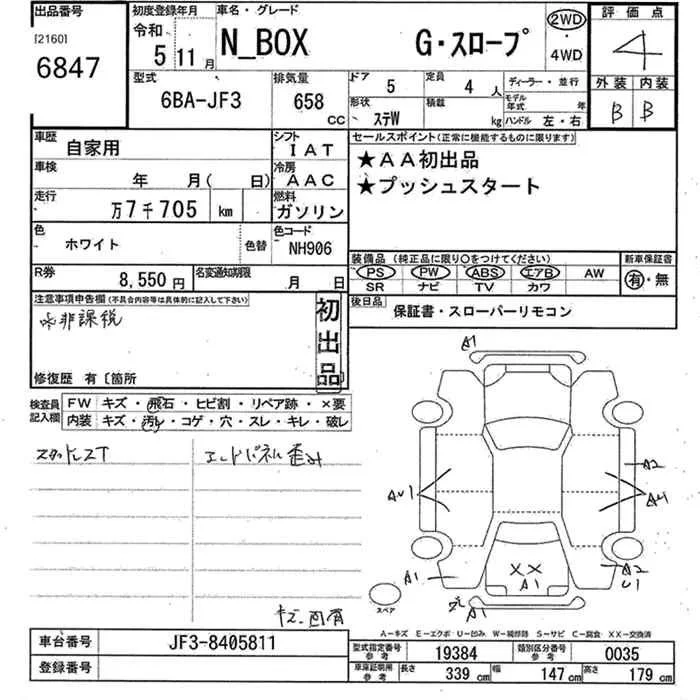 出品番号 初度登録年月 車名・グレード 2WD 評価点
[2160] 令和
6847 5 11月 N_BOX G・スロープ ・ 4WD 4
型式 排気量 ドア 5 定員 4人 ディーラー・並行 外装 内装
6BA-JF3 658 CC 形状 ステW 積載 kg モデル年式 年 ハンドル 左・右 B B
車歴 自家用 シフト IAT セールスポイント(正常に機能するものに限ります)
車検 年 月( 日) 冷房 AAC ★AA初出品
走行 万7千705 km 燃料 ガソリン ★プッシュスタート
色 ホワイト 色替 色コード NH906
装備品 (純正品に限り○をつけてください) 新車保証書
R券 8,550円 名変通知期限 月 日 PS PW ABS エアB AW 有・無
SR ナビ TV カワ
注意事項申告欄(不具合内容等は具体的に記入して下さい) 初出品 後日品 保証書・スローパーリモコン
※非課税
修復歴 有〔箇所
検査員記入欄 FW キズ・飛石・ヒビ割・リペア跡・×要
内装 キズ・汚れ・コゲ・穴・スレ・キレ・破レ
スタッドレスT エンドパネル歪み
A1
A2
AU1
A1 A2
U1
XX
A1
A1
スペア
キズ、凹有
A-キズ E-エクボ U-凹み W-補修跡 S-サビ C-腐食 XX-交換済
車台番号 JF3-8405811 型式指定番号 参考 19384 類別区分番号 参考 0035
登録番号 車庫証明用 参考 長さ 339 cm 幅 147 cm 高さ 179 cm